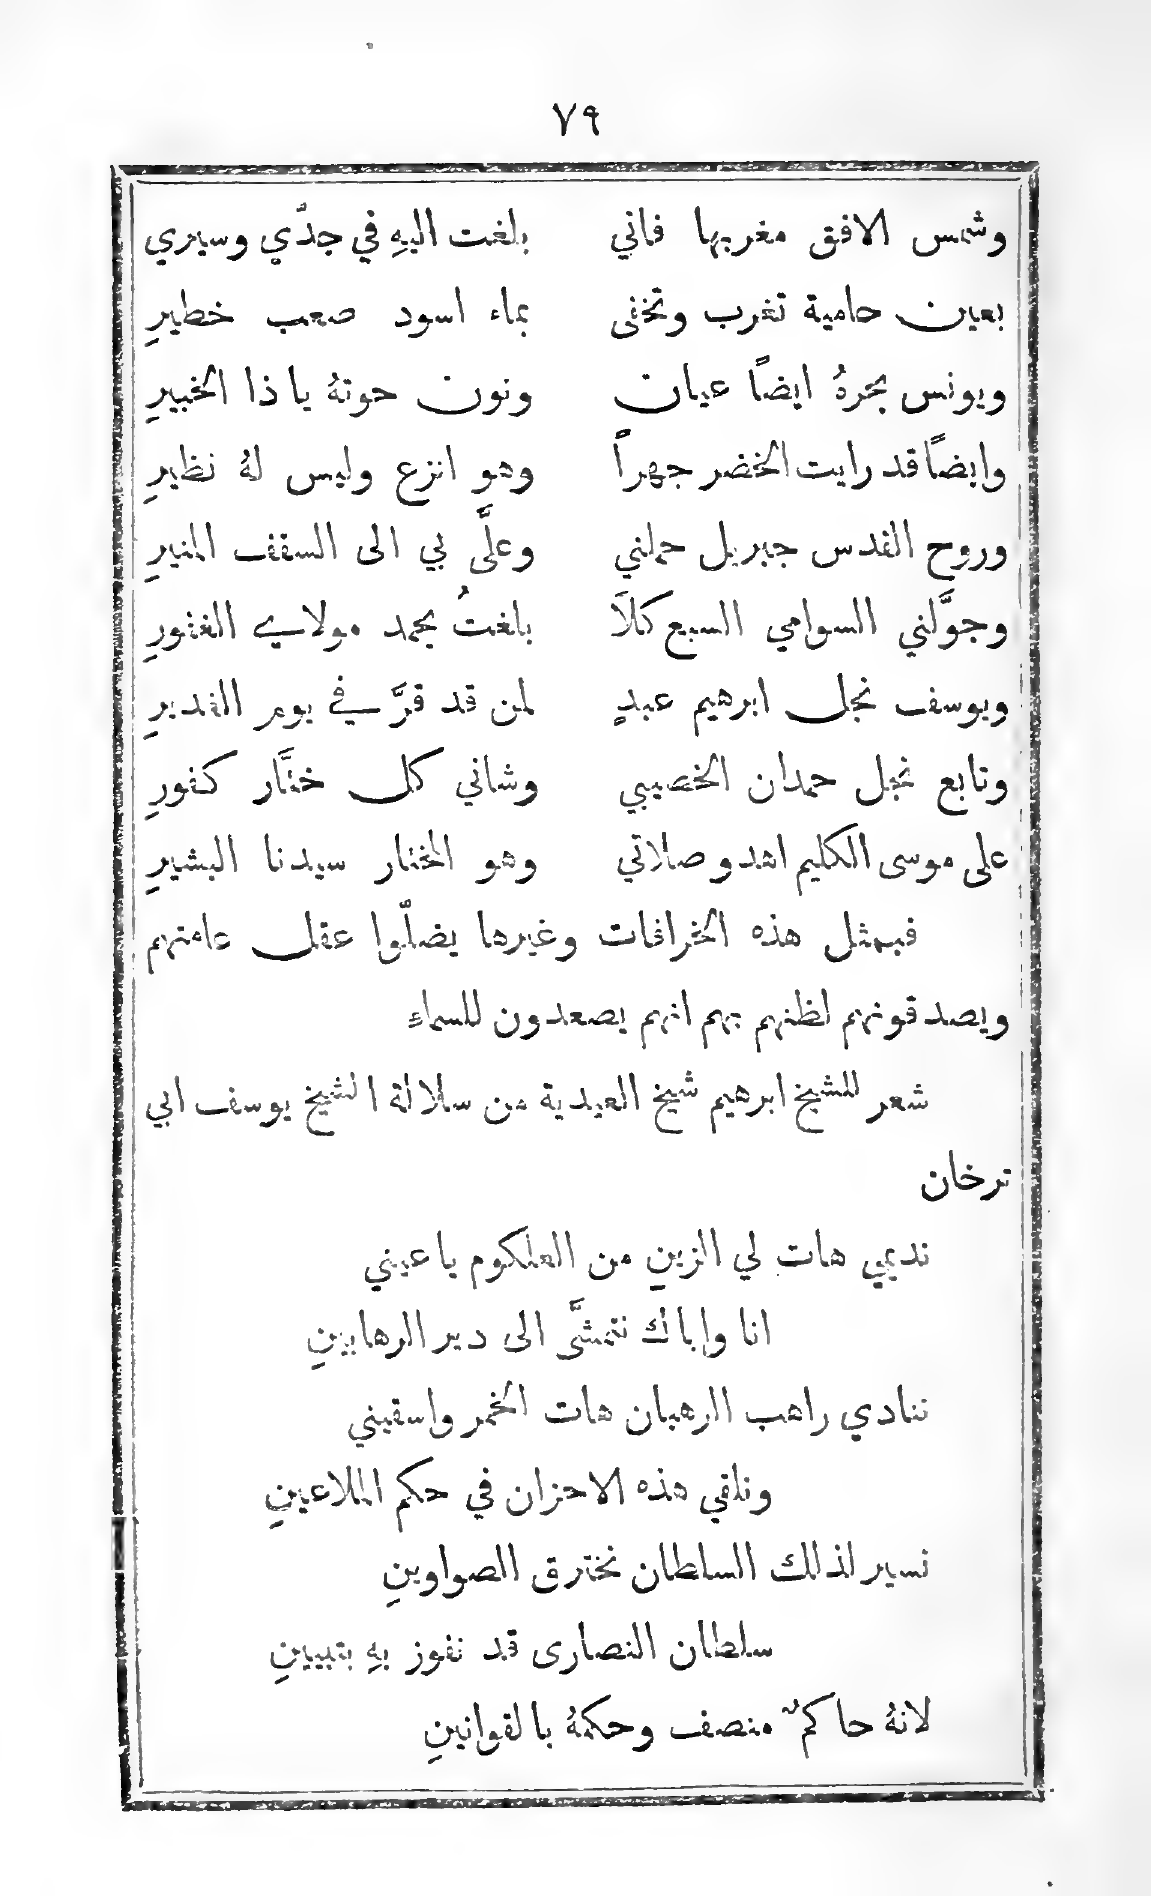 ٧٩
وشمس الافق مغربها فاني بلغت اليهِ في جدّي وسيري
بعين حامية تغرب وتخفى بماء اسود صعب خطيرِ
ويونس بحرهُ ايضاً عيان ونون حوتهُ يا ذا الخبيرِ
وايضاً قد رايت الخضر جهراً وهو انزع وليس لهُ نظيرِ
وروح القدس جبريل حملني وعلَّى بي الى السقف المنيرِ
وجوَّلني السوامي السبع كلاَ بلغتُ بحمد مولاي الغفورِ
ويوسف نجل ابرهيم عبدٍ لمن قد قرَّ في يوم الغديرِ
وتابع نجل حمدان الخصيبي وشاني كل ختَّار كفورِ
على موسى الكليم اهدو صلاتي وهو المختار سيدنا البشيرِ
فبمثل هذه الخرافات وغيرها يضلّوا عقل عامتهم
ويصدقونهم لظنهم بهم انهم يصعدون للسماءِ
شعر للشيخ ابرهيم شيخ العيدية من سلالة الشيخ يوسف ابي
ترخان
نديمي هات لي الزينِ من العلكوم يا عيني
انا واياك نتمشَّى الى دير الرهابينِ
ننادي راهب الرهبان هات الخمر واسقيني
ونلقي هذه الاحزان في حكم الملاعينِ
نسير لذلك السلطان نخترق الصواوينِ
سلطان النصارى قد نفوز بهِ بتبيينِ
لانهُ حاكمٌ منصف وحكمهُ بالقوانينِ